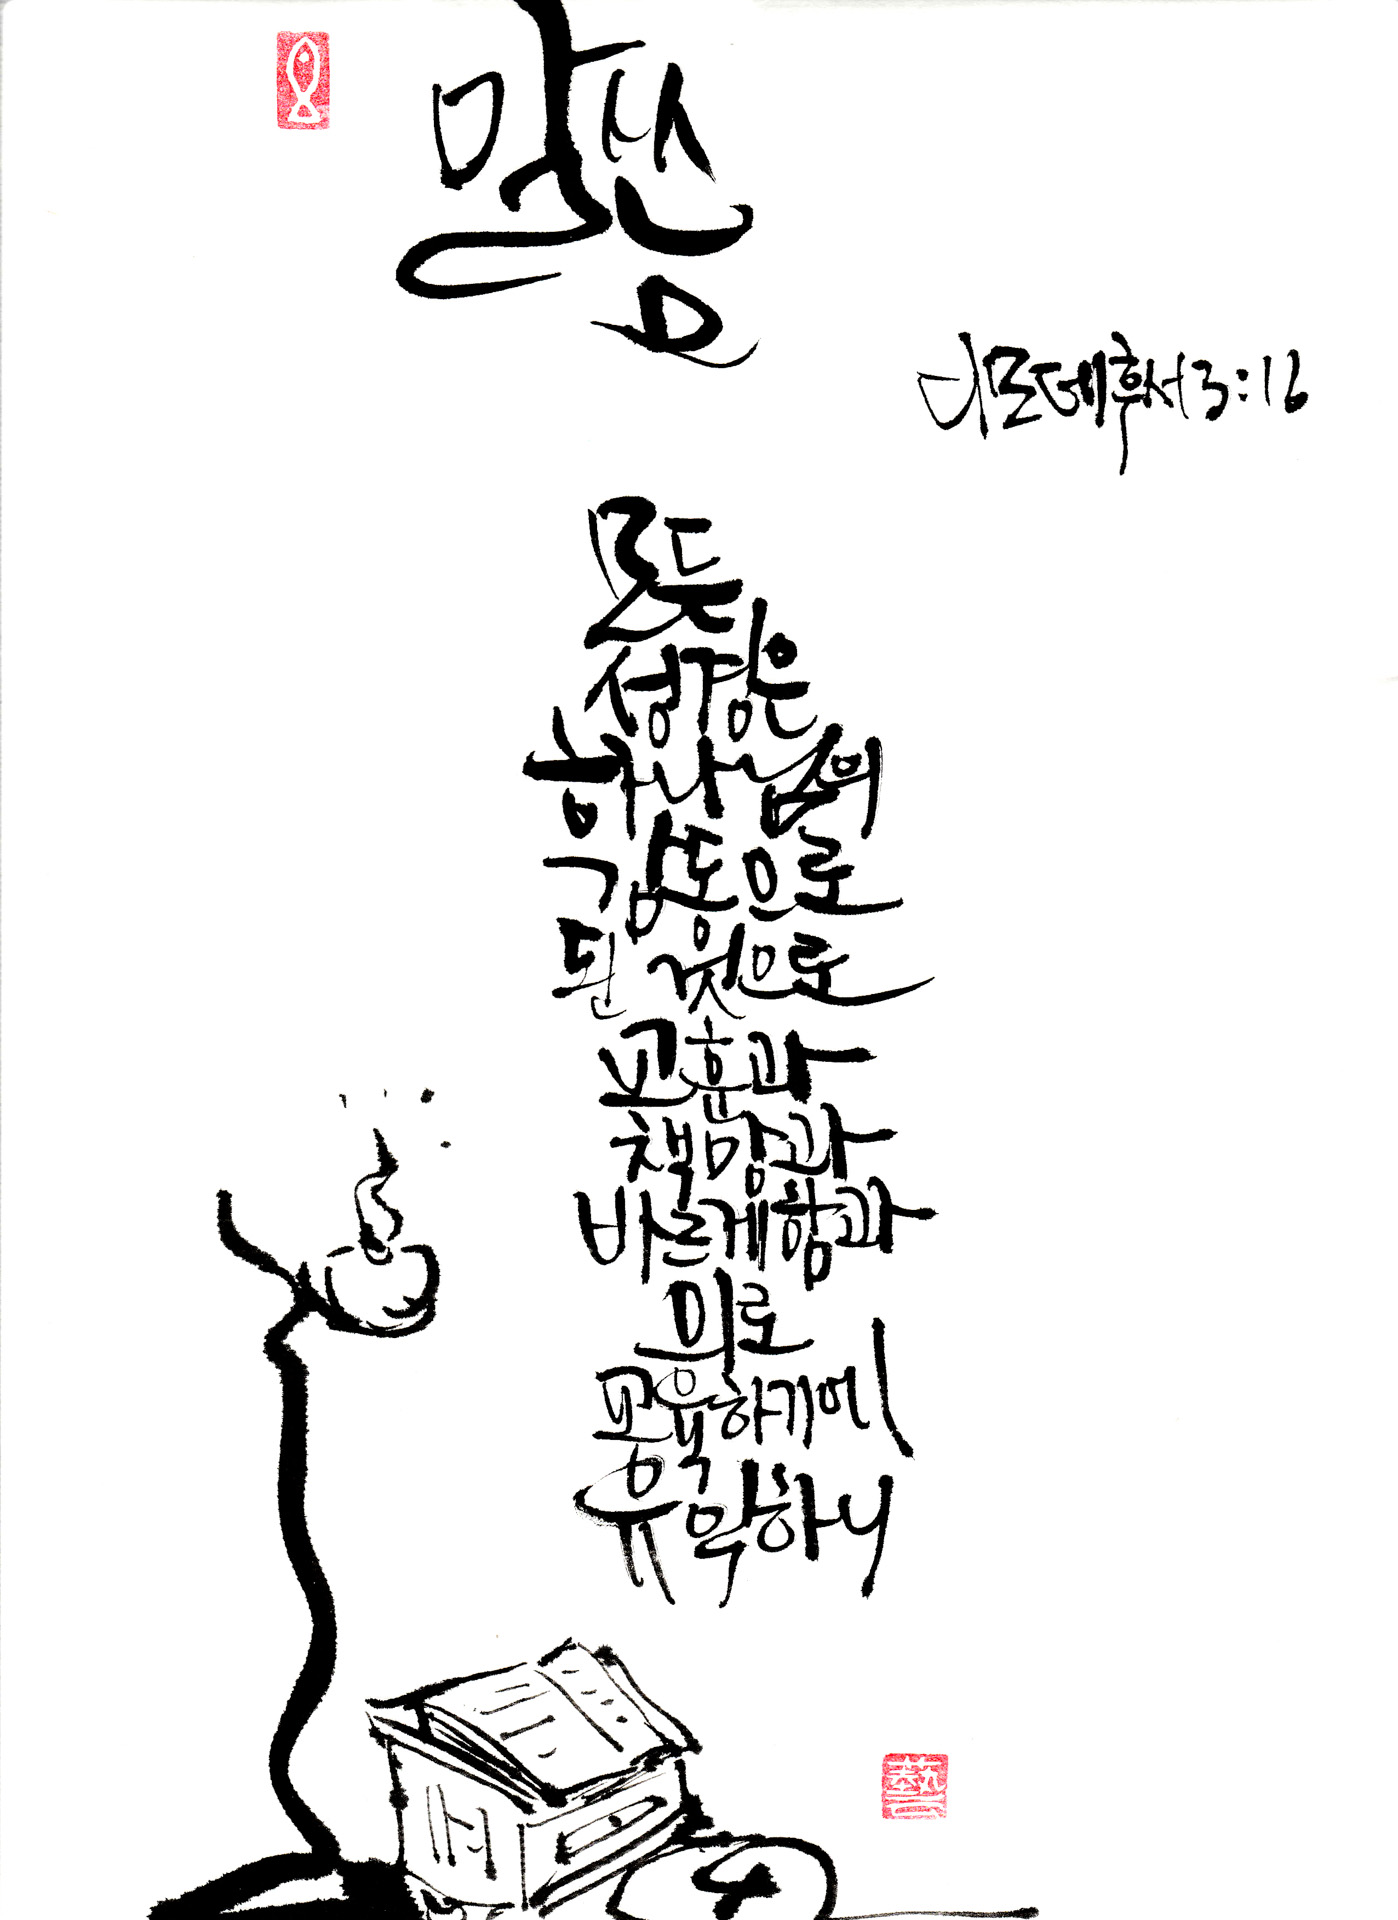 말씀
디모데후서 3:16
모든
성경은
하나님의
감동으로
된 것으로
교훈과
책망과
바르게 함과
의로
교육하기에
유익하니
藝